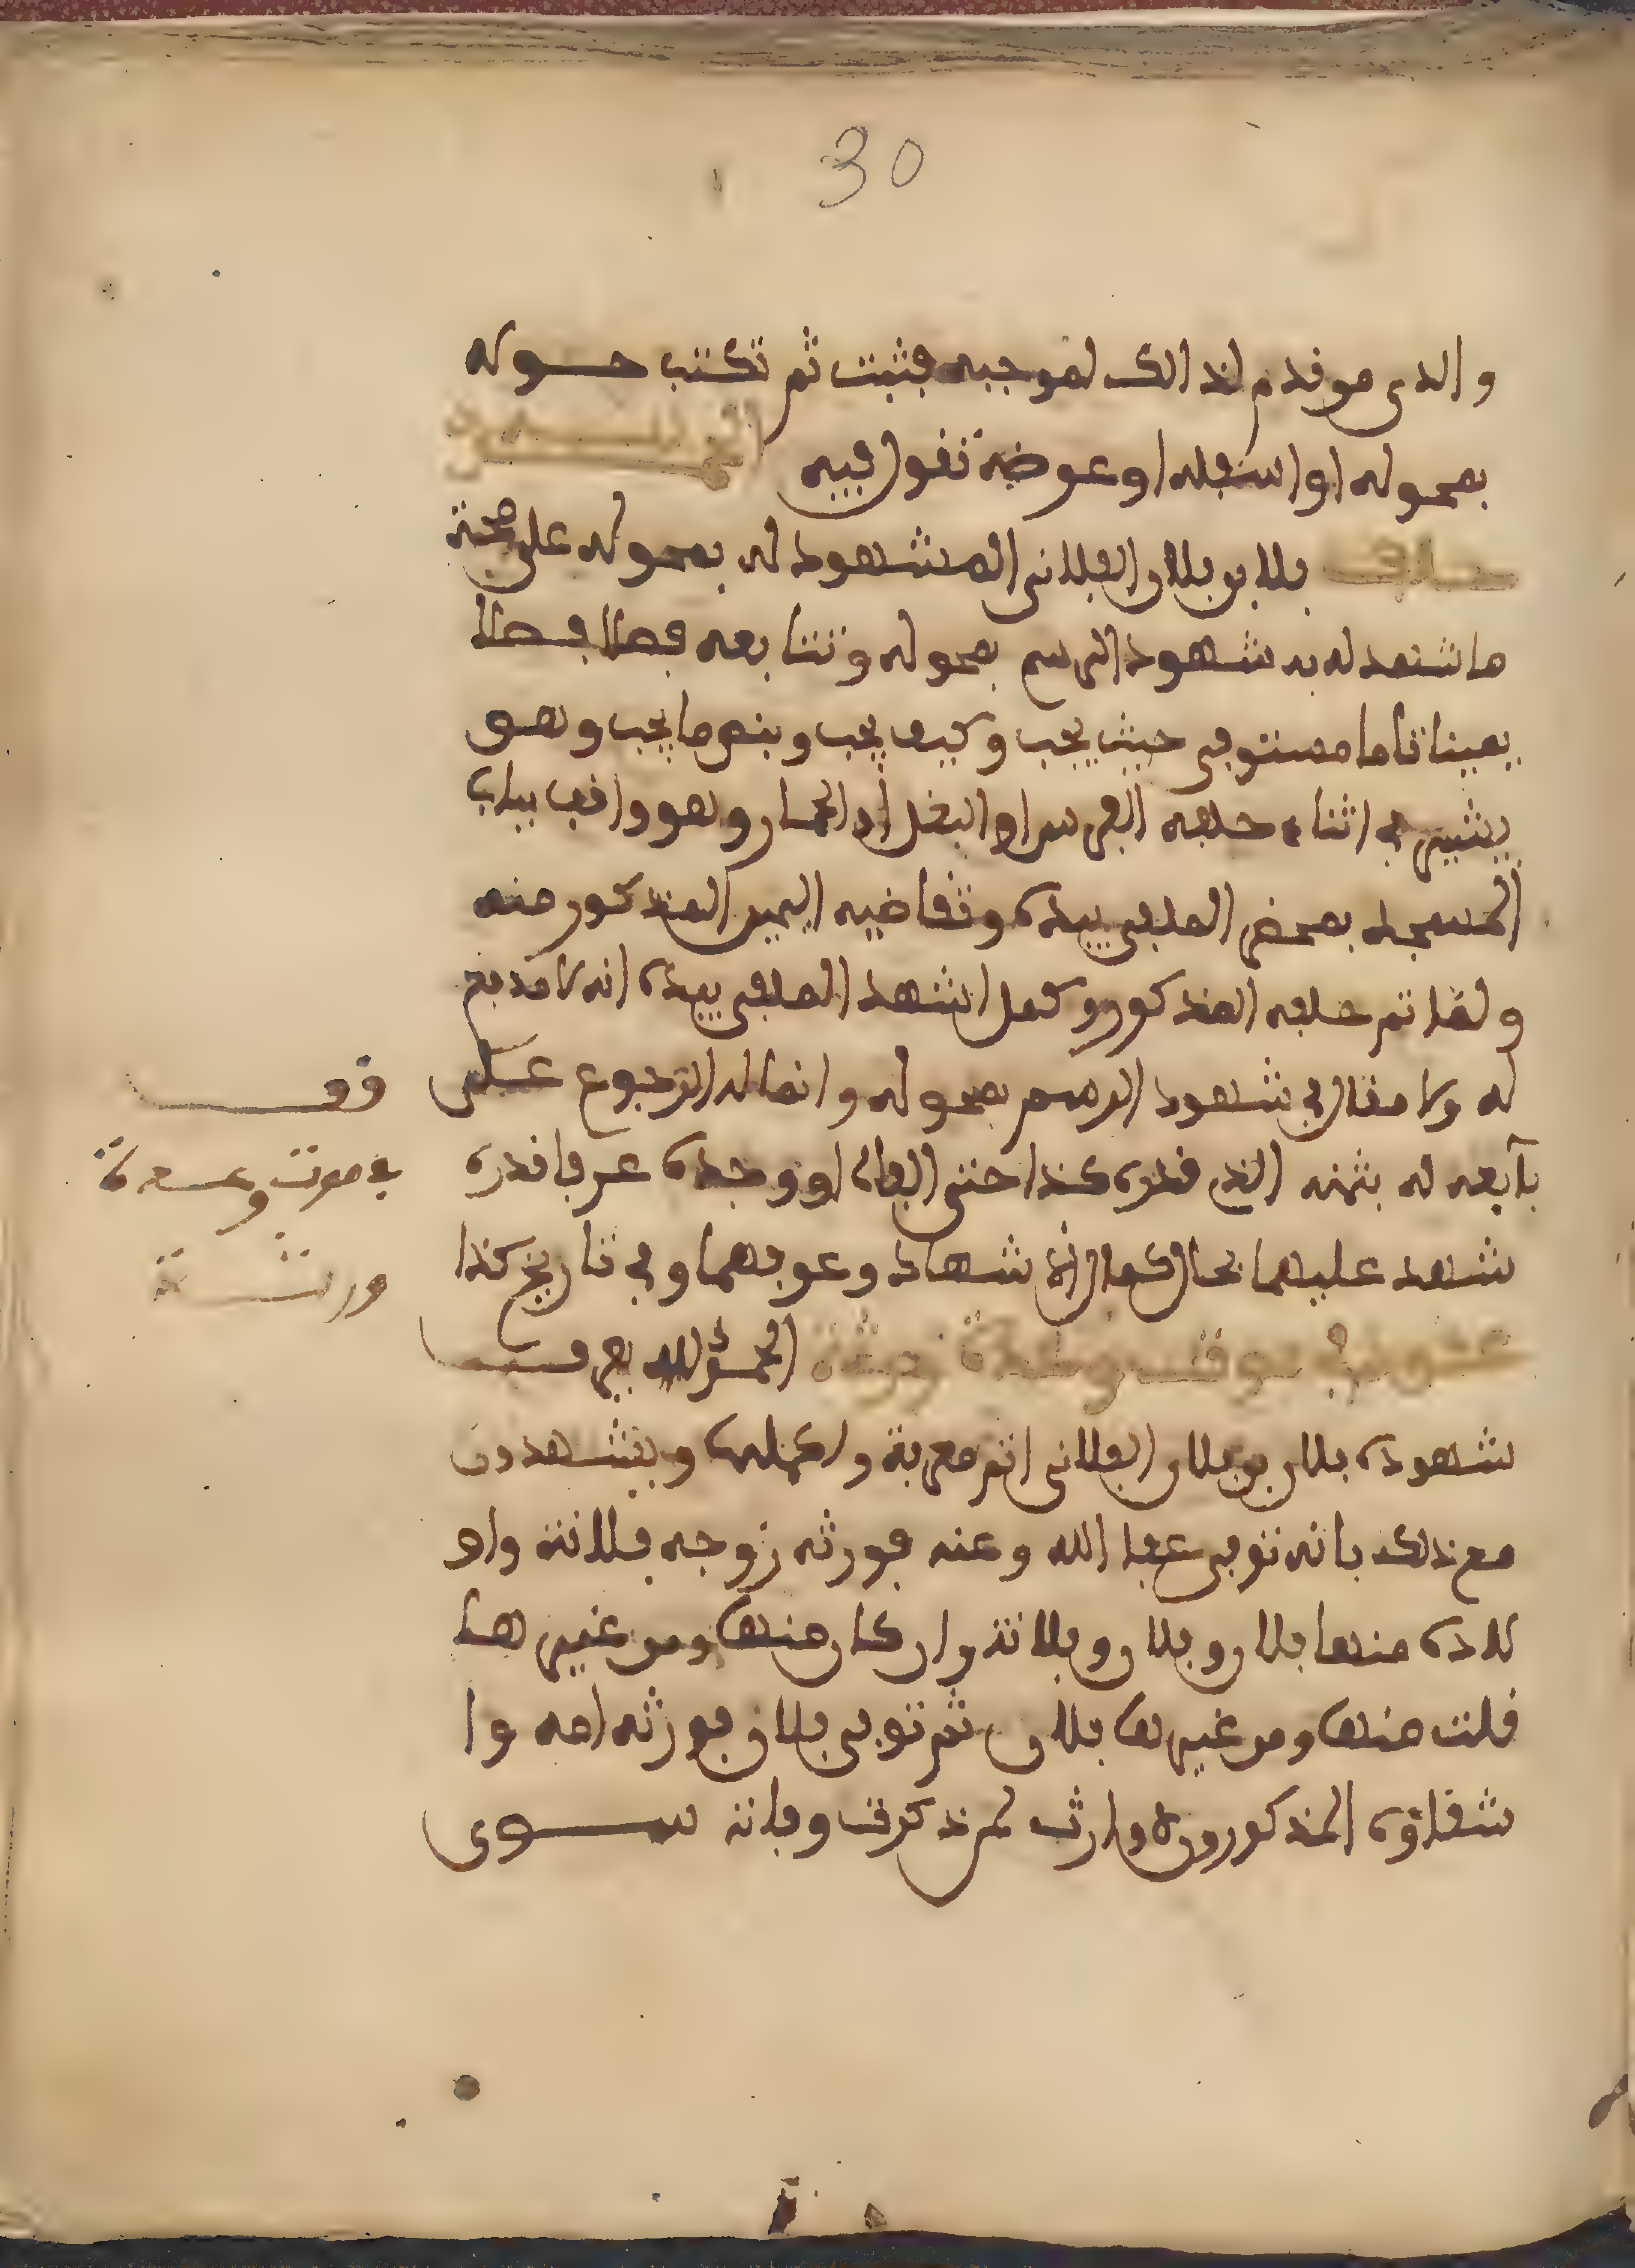 30
والذي من قدم لذالك لموجبه فثبت ثم تكتب حوله
بمحوله او اسفله او عوضه تقول فيه الحمد لله
حلف فلا بن فلان الفلاني المشهود له بمحوله على صحة
ما شهد له به شهود الرسم بمحوله وتتابعه فصلا فصلا
يمينا تاما مستوفى حيث يجب وكيف يجب وبنص ما يجب وهو
يشير في اثناء حلفه الفرس او البغل او الحمار وهو واقف بباب
المسجد بمحضر الملفى بيده وتقاضيه اليمين المذكور منه
ولما تم حلفه المذكور وكمل اشهد الملفى بيده انه لا مدفع
له ولا مقال في شهود الرسم بمحوله وانما له الرجوع على
بآيعه له بثمنه الذي قدره كذا حتى الفاه او وجده عرفا قدره
شهد عليهما بحال كمال الاشهاد وعرفهما وفي تاريخ كذا
موت وعدة ورثة الحمد لله يعرف
شهوده فلان بن فلان الفلاني اتم معرفة واكملها ويشهدون
مع ذلك بانه توفي عفا الله وعنه فورثه زوجه فلانة واو
لاده منها فلان وفلان وفلانة وان كان منها ومن غيرها
قلت منها ومن غيرها فلان ثم توفي فلان فورثه امه وا
شقاؤه المذكورون لا وارث لمن ذكرت وفاته سوى
قف
في موت وعدة
ورثة